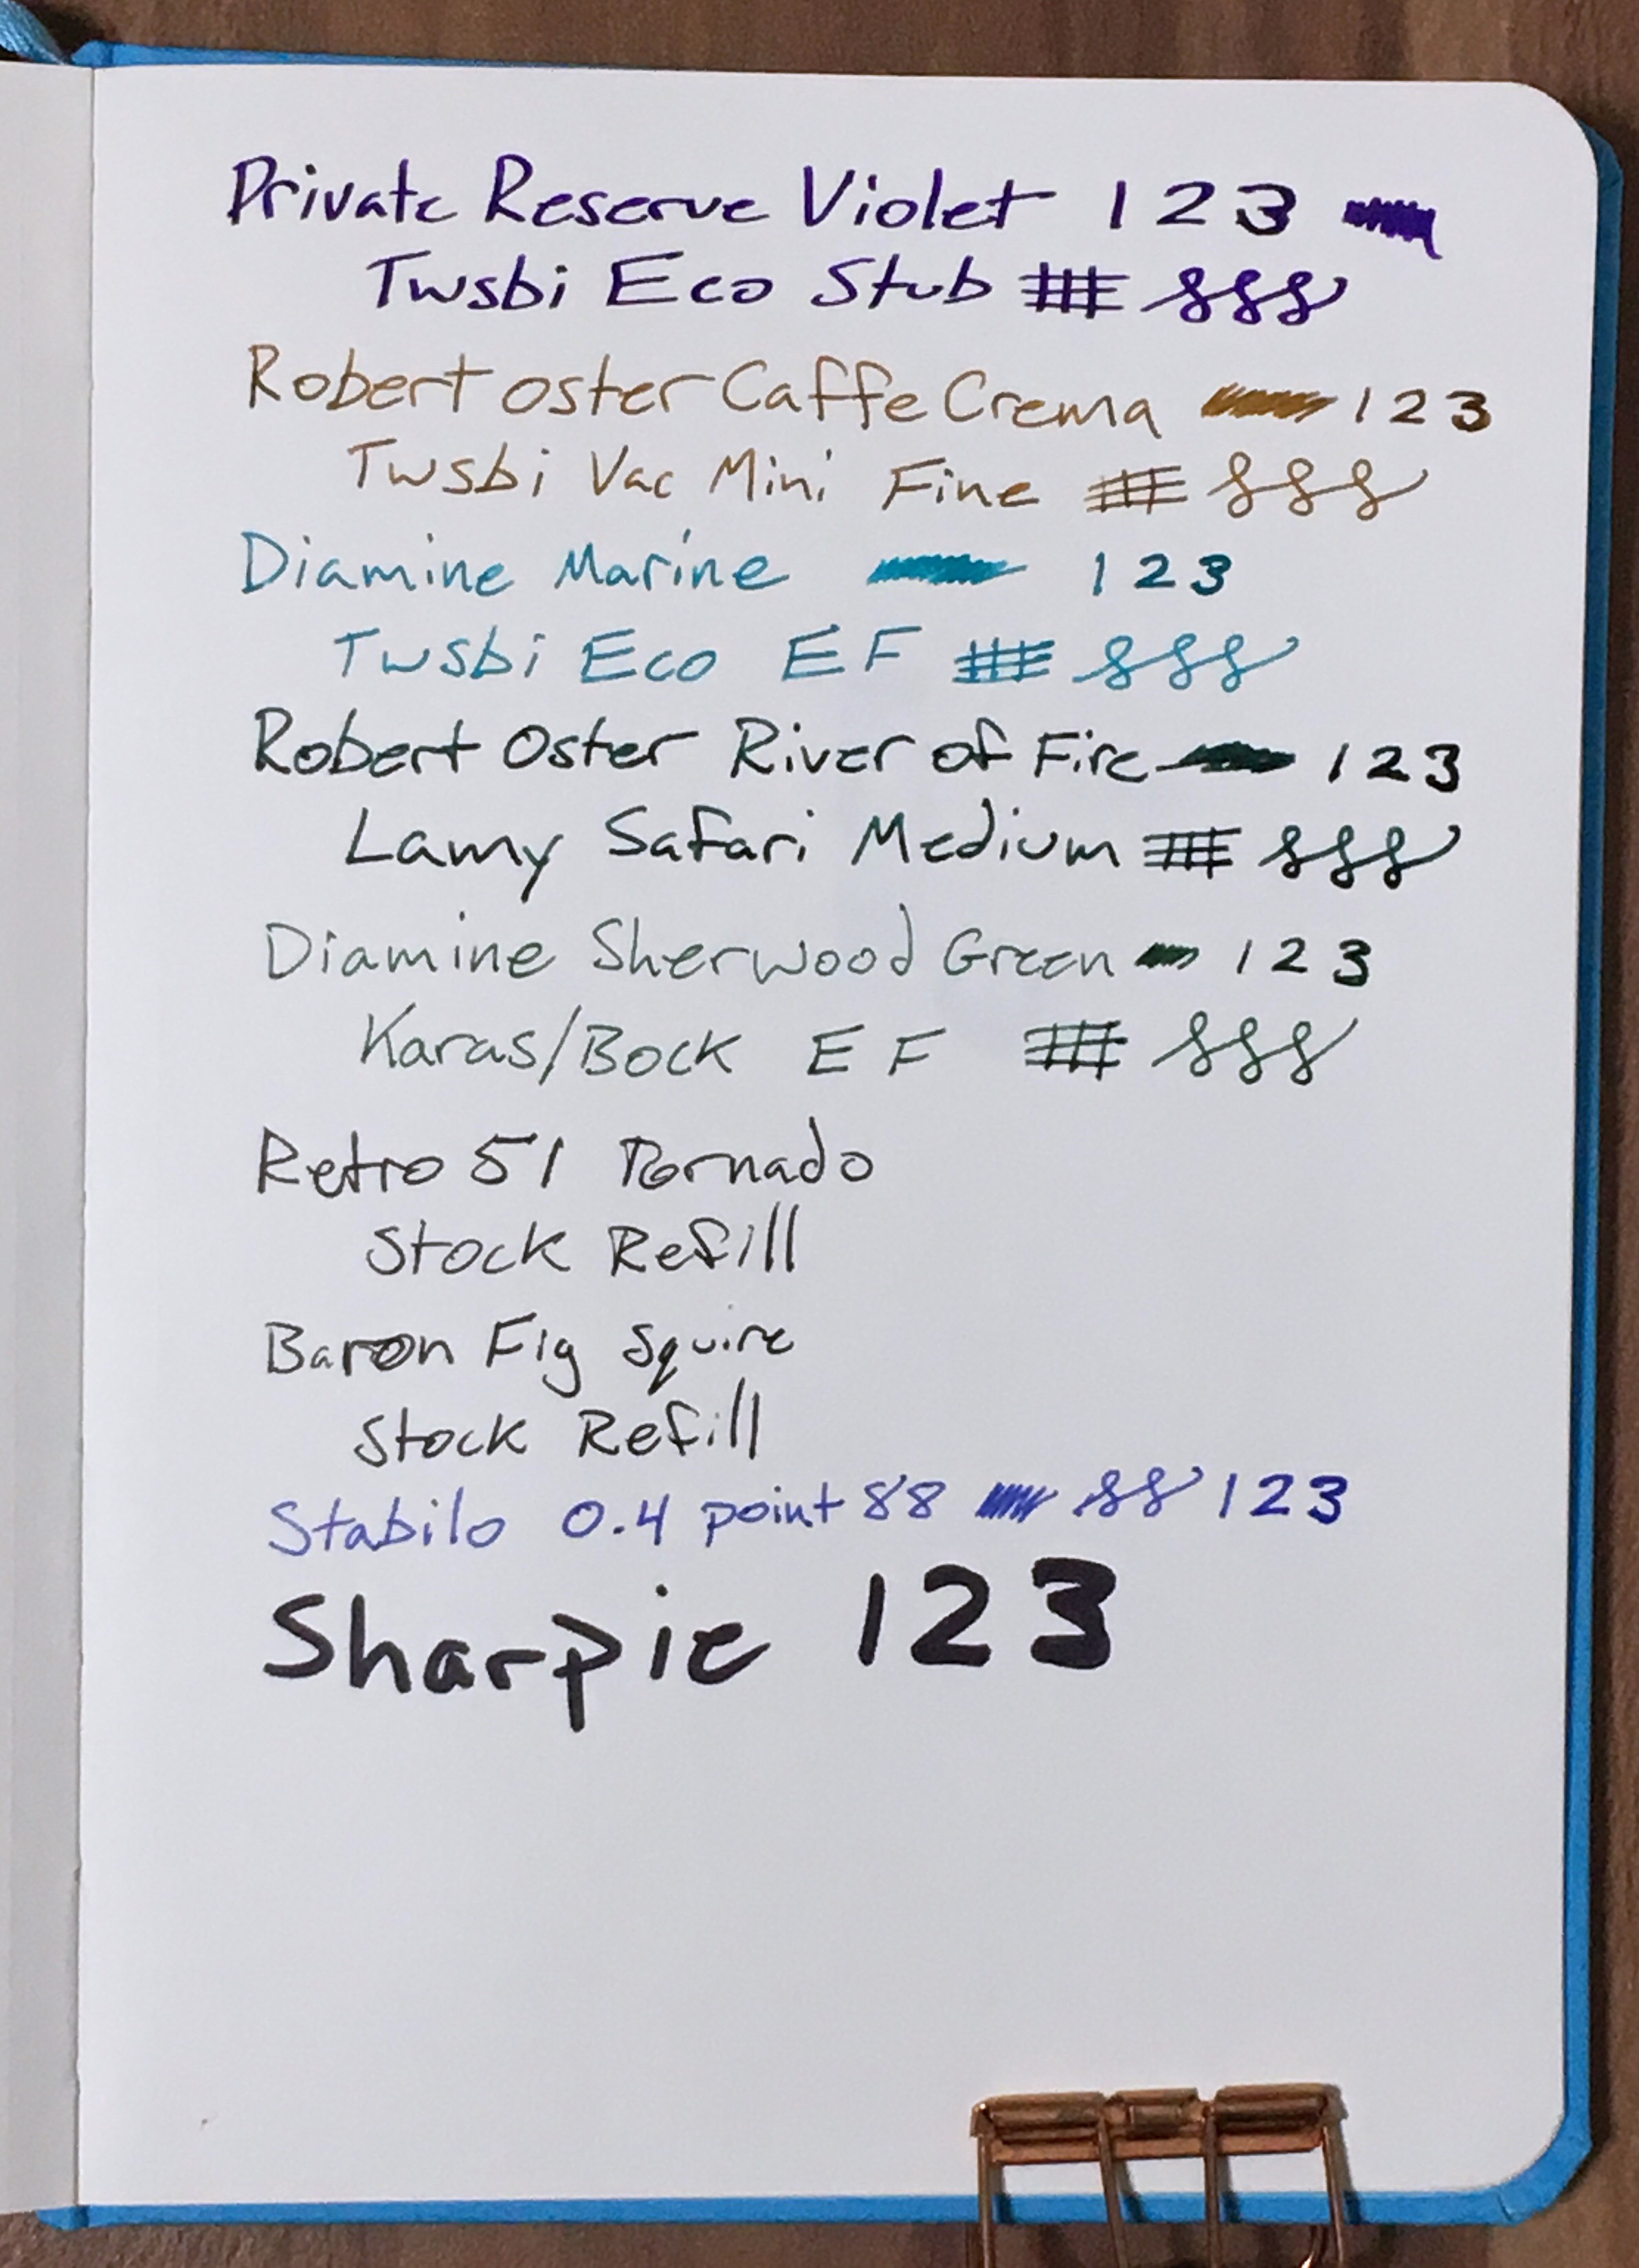 Private Reserve Violet 1 2 3
Twsbi Eco Stub
Robert oster Caffe Crema 1 2 3
Twsbi Vac Mini Fine
Diamine Marine 1 2 3
Twsbi Eco EF
Robert Oster River of Fire 1 2 3
Lamy Safari Medium
Diamine Sherwood Green 1 2 3
Karas/Bock EF
Retro 51 Tornado
Stock Refill
Baron Fig Squire
Stock Refill
Stabilo 0.4 point 88 1 2 3
Sharpie 1 2 3